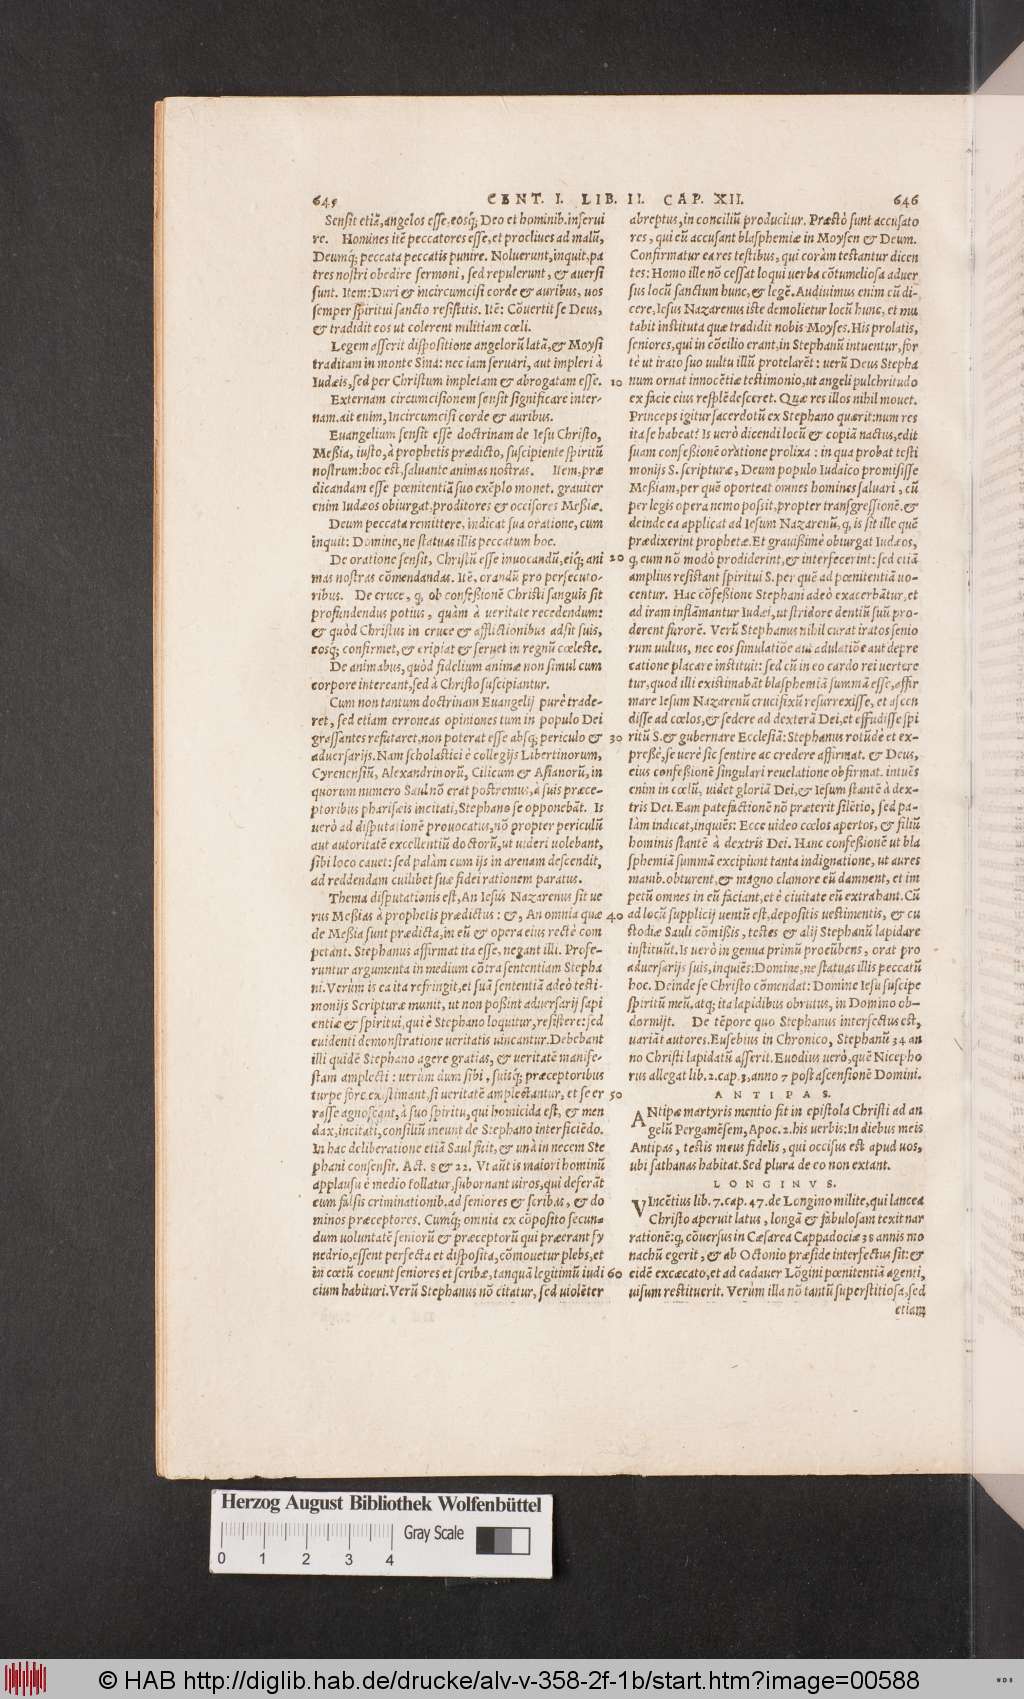 645 CENT. I. LIB. II. CAP. XII. 646
Sensit etiã, angelos esse, eosq́; Deo et hominib. inserui
re. Homines itẽ peccatores esse, et procliues ad malũ,
Deumq́; peccata peccatis punire. Noluerunt, inquit, pa
tres nostri obedire sermoni, sed repulerunt, & auersi
sunt. Item: Duri & incircumcisi corde & auribus, uos
semper spiritui sancto resistitis. Itẽ: Cõuertit se Deus,
& tradidit eos ut colerent militiam cœli.
Legem asserit dispositione angelorũ latã, & Moysi
traditam in monte Sina: nec iam seruari, aut impleri à
Iudæis, sed per Christum impletam & abrogatam esse.
Externam circumcisionem sensit significare inter-
nam. ait enim, Incircumcisi corde & auribus.
Euangelium sensit esse doctrinam de Iesu Christo,
Meßia, iusto, à prophetis prædicto, suscipiente spiritũ
nostrum: hoc est, saluante animas nostras. Item, præ
dicandam esse pœnitentiã suo exẽplo monet. grauiter
enim Iudæos obiurgat, proditores & occisores Meßiæ.
Deum peccata remittere, indicat sua oratione, cum
inquit: Domine, ne statuas illis peccatum hoc.
De oratione sensit, Christũ esse inuocandũ, eiq́; ani
mas nostras cõmendandas. Itẽ, orandũ pro persecuto-
ribus. De cruce, q, ob confeßionẽ Christi sanguis sit
profundendus potius, quàm à ueritate recedendum:
& quòd Christus in cruce & afflictionibus adsit suis,
eosq́; confirmet, & eripiat & seruet in regnũ cœleste.
De animabus, quòd fidelium animæ non simul cum
corpore intereant, sed à Christo suscipiantur.
Cum non tantum doctrinam Euangelij purè trade-
ret, sed etiam erroneas opiniones tum in populo Dei
grassantes refutaret, non poterat esse absq́; periculo &
aduersarijs. Nam scholastici è collegijs Libertinorum,
Cyrenensiũ, Alexandrinorũ, Cilicum & Asianorũ, in
quorum numero Saul nõ erat postremus, à suis præce-
ptoribus pharisæis incitati, Stephano se opponebãt. Is
uerò ad disputationẽ prouocatus, nõ propter periculũ
aut autoritatẽ excellentiũ doctorũ, ut uideri uolebant,
sibi loco cauet: sed palàm cum ijs in arenam descendit,
ad reddendam cuilibet suæ fidei rationem paratus.
Thema disputationis est, An Iesus Nazarenus sit ue
rus Meßias à prophetis prædictus: &, An omnia quæ
de Meßia sunt prædicta, in eũ & opera eius rectè com
petant. Stephanus affirmat ita esse, negant illi. Profe-
runtur argumenta in medium cõtra sententiam Stepha
ni. Verùm is ea ita refringit, et suã sententiã adeò testi-
monijs Scripturæ munit, ut non poßint aduersarij sapi
entiæ & spiritui, qui è Stephano loquitur, resistere: sed
euidenti demonstratione ueritatis uincantur. Debebant
illi quidẽ Stephano agere gratias, & ueritatẽ manife-
stam amplecti: uerùm dum sibi, suisq́; præceptoribus
turpe fore existimant, si ueritatẽ amplectantur, et se er
rasse agnoscant, à suo spiritu, qui homicida est, & men
dax, incitati, consiliũ ineunt de Stephano interficiẽdo.
In hac deliberatione etiã Saul fuit, & unà in necem Ste
phani consensit. Act. 8 & 22. Vt aũt is maiori hominũ
applausu è medio tollatur, subornant uiros, qui deferãt
eum falsis criminationib. ad seniores & scribas, & do
minos præceptores. Cumq́; omnia ex cõposito secun-
dum uoluntatẽ seniorũ & præceptorũ qui præerant sy
nedrio, essent perfecta et disposita, cõmouetur plebs, et
in cœtũ coeunt seniores et scribæ, tanquã legitimũ iudi
cium habituri. Verũ Stephanus nõ citatur, sed uiolẽter
10
20
30
40
50
60
abreptus, in conciliũ producitur. Præstò sunt accusato
res, qui eũ accusant blasphemiæ in Moysen & Deum.
Confirmatur ea res testibus, qui coràm testantur dicen
tes: Homo ille nõ cessat loqui uerba cõtumeliosa aduer
sus locũ sanctum hunc, & legẽ. Audiuimus enim cũ di-
cere, Iesus Nazarenus iste demolietur locũ hunc, et mu
tabit instituta quæ tradidit nobis Moyses. His prolatis,
seniores, qui in cõcilio erant, in Stephanũ intuentur, for
tè ut irato suo uultu illũ protelarẽt: uerũ Deus Stepha
num ornat innocẽtiæ testimonio, ut angeli pulchritudo
ex facie eius resplẽdesceret. Quæ res illos nihil mouet.
Princeps igitur sacerdotũ ex Stephano quærit: num res
ita se habeat? Is uerò dicendi locũ & copiã nactus, edit
suam confeßionẽ oratione prolixa: in qua probat testi
monijs S. scripturæ, Deum populo Iudaico promisisse
Meßiam, per quẽ oporteat omnes homines saluari, cũ
per legis opera nemo possit, propter transgreßionẽ. &
deinde ea applicat ad Iesum Nazarenũ, q, is sit ille quẽ
prædixerint prophetæ. Et grauißimè obiurgat Iudæos,
q, eum nõ modò prodiderint, & interfecerint: sed etiã
amplius resistant spiritui S. per quẽ ad pœnitentiã uo-
centur. Hac cõfeßione Stephani adeò exacerbãtur, et
ad iram inflãmantur Iudæi, ut stridore dentiũ suũ pro-
derent furorẽ. Verũ Stephanus nihil curat iratos senio
rum uultus, nec eos simulatiõe aut adulatiõe aut depre
catione placare instituit: sed cũ in eo cardo rei uertere
tur, quod illi existimabãt blasphemiã summã esse, affir
mare Iesum Nazarenũ crucifixũ resurrexisse, et ascen
disse ad cœlos, & sedere ad dexterã Dei, et effudisse spi
ritũ S. & gubernare Ecclesiã: Stephanus rotũdè et ex-
preßè, se uerè sic sentire ac credere affirmat. & Deus,
eius confeßionẽ singulari reuelatione obfirmat. intuẽs
enim in cœlũ, uidet gloriã Dei, & Iesum stantẽ à dex-
tris Dei. Eam patefactionẽ nõ præterit silẽtio, sed pa-
làm indicat, inquiẽs: Ecce uideo cœlos apertos, & filiũ
hominis stantẽ à dextris Dei. Hanc confeßionẽ ut bla
sphemiã summã excipiunt tanta indignatione, ut aures
manib. obturent, & magno clamore eũ damnent, et im
petũ omnes in eũ faciant, et è ciuitate eũ extrahant. Cũ
ad locũ supplicij uentũ est, depositis uestimentis, & cu
stodiæ Sauli cõmißis, testes & alij Stephanũ lapidare
instituũt. Is uerò in genua primũ procũbens, orat pro
aduersarijs suis, inquiẽs: Domine, ne statuas illis peccatũ
hoc. Deinde se Christo cõmendat: Domine Iesu suscipe
spiritũ meũ, atq́; ita lapidibus obrutus, in Domino ob-
dormijt. De tẽpore quo Stephanus interfectus est,
uariãt autores. Eusebius in Chronico, Stephanũ 34 an
no Christi lapidatũ asserit. Euodius uerò, quẽ Nicepho
rus allegat lib. 2. cap. 3, anno 7 post ascensionẽ Domini.
ANTIPAS.
ANtipæ martyris mentio fit in epistola Christi ad an
gelũ Pergamẽsem, Apoc. 2. his uerbis: In diebus meis
Antipas, testis meus fidelis, qui occisus est apud uos,
ubi sathanas habitat. Sed plura de eo non extant.
LONGINVS.
VIncẽtius lib. 7. cap. 47. de Longino milite, qui lancea
Christo aperuit latus, longã & fabulosam texit nar
rationẽ: q, cõuersus in Cæsarea Cappadociæ 38 annis mo
nachũ egerit, & ab Octonio præside interfectus sit: &
eidẽ excæcato, et ad cadauer Lõgini pœnitentiã agenti,
uisum restituerit. Verùm illa nõ tantũ superstitiosa, sed
etiam
Herzog August Bibliothek Wolfenbüttel
Gray Scale
0 1 2 3 4
© HAB http://diglib.hab.de/drucke/alv-v-358-2f-1b/start.htm?image=00588